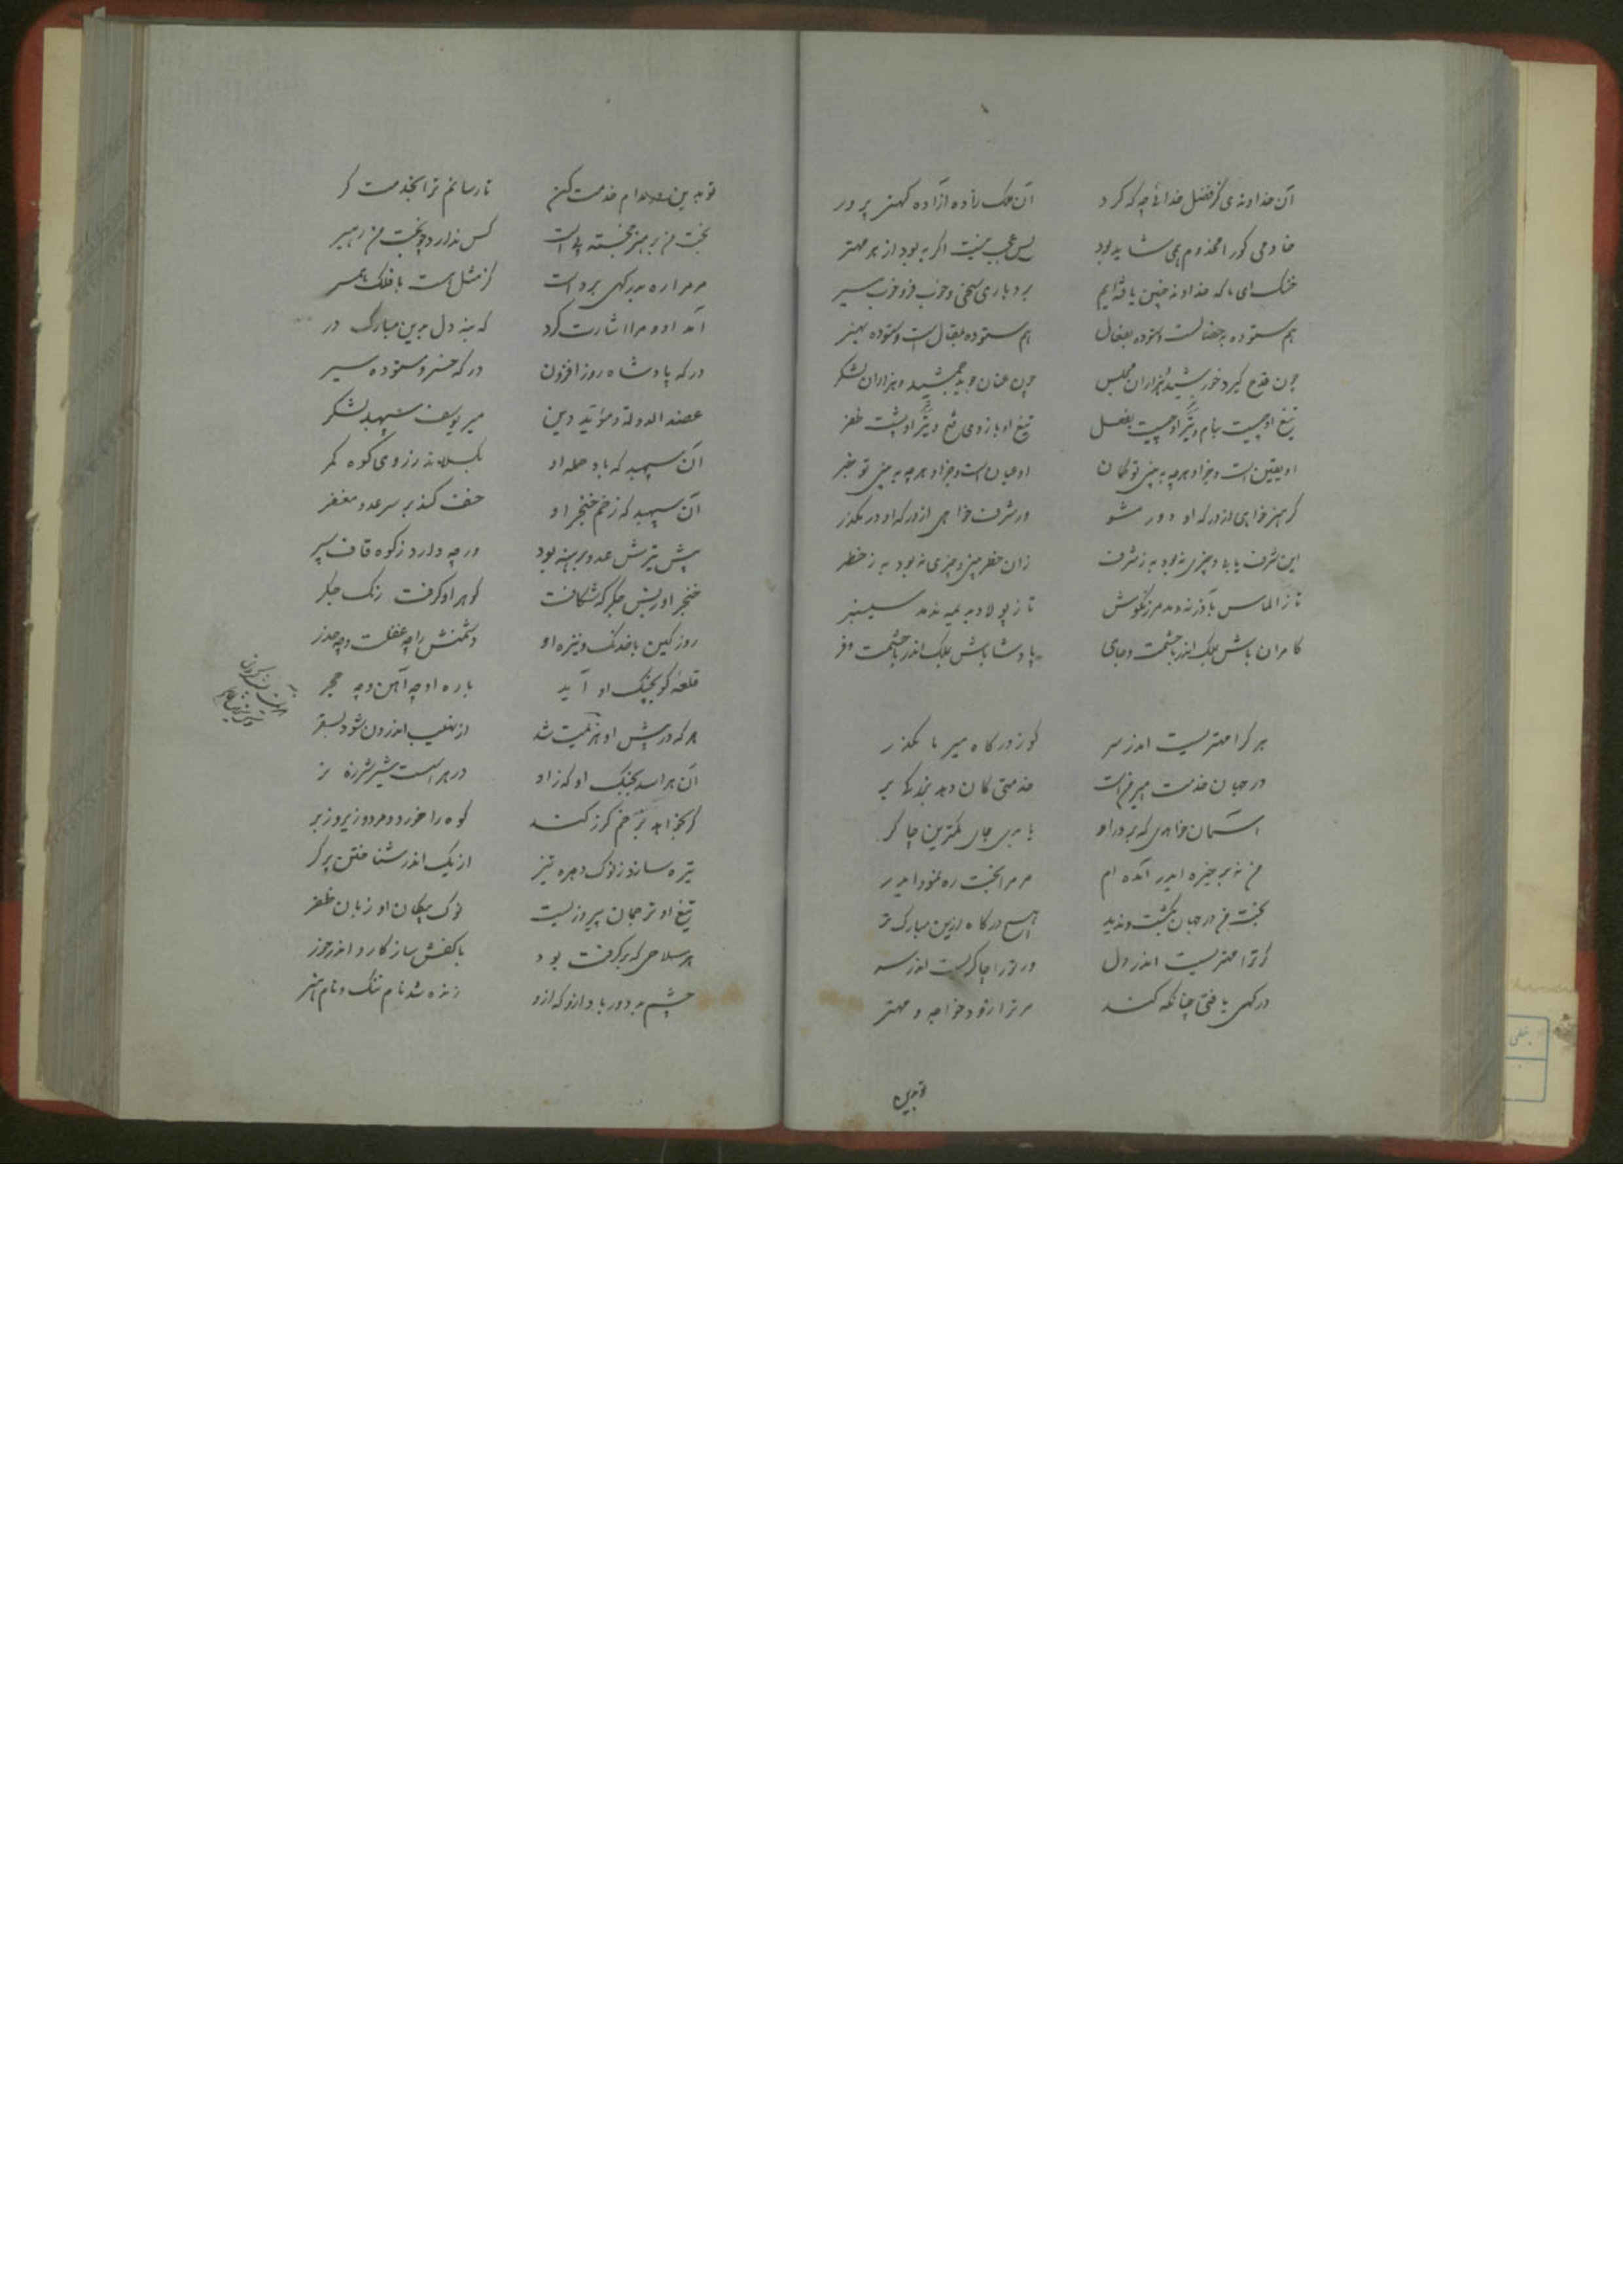 آن خداوندی کز فضل خدائی چه که کرد آن ملک زاده آزاده کهتر پرور
خادمی کورا مخدوم همی شاید بود بس عجب نیست اگر به بود از هر مهتر
خنک ای ما که خداوند چنین یافته‌ایم بردباری سخی و خوب خو و خوب سیر
هم ستوده بخصالست و ستوده بفعال هم ستوده بمقال است و ستوده بهنر
چون قدح گیرد خورشید هزاران مجلس چون عنان جوید جمشید هزاران لشکر
تیغ او چیست بنام و تیر او چیست بفعل تیغ او بازوی فتح و تیر او پشت ظفر
او یقین است و جز او هرچه به بینی تو گمان او عیان است و جز او هرچه به بینی تو خبر
گر هنر خواهی از درگه او دور مشو ور شرف خواهی از درگه او در مگذر
این شرف یابد و چیزی نبود به ز شرف زان خطر بینی و چیزی نبود به ز خطر
تا ز الماس بآذر ندمد مرزنگوش تا ز پولاد به ندمد سیسنبر
کامران باش بملک اندر با حشمت و جای پادشا باش بملک اندر با حشمت و فر
هر کرا مهتریست اندر سر گو ز درگاه میر ما مگذر
در جهان خدمت میر من است خدمتی کان دهد بزندگی بر
آسمان خواهد که بر در او یابدی جای کمترین چاکر
من نه بر خیره ایدر آمده ام مر مرا بخت ره نمود ایدر
بخت من در جهان بگشت و ندید هیچ درگاه ازین مبارک تر
گر ترا مهتریست اندر دل ور ترا چاکریست اندر سر
در کهی یافتی چنانکه کند مر ترا زود خواجه و مهتر
تو بدین
تو بدین در مدام خدمت کن تا رسانم ترا بخدمت گر
بخت من بر هنر خجسته پی است کس ندارد چو بخت من رهبر
مر مرا ره بدرگهی برد است کز مثل است با فلک همسر
آمد او و مرا اشارت کرد که بنه دل برین مبارک در
درگه پادشاه روز افزون درگه خسرو ستوده سیر
عضد الدولة و مؤید دین میر یوسف سپهبد لشکر
آن سپهبد که باد حمله او بگسلاند ز روی کوه کمر
آن سپهبد که زخم خنجر او خفت کند بر سر عدو مغفر
پیش تیرش عدو برهنه بود ورچه دارد ز کوه قاف سپر
خنجر او ز بس جگر که شکافت گوهر او گرفت رنگ جگر
روز کین با خدنگ و نیزه او دشمنش را چه غفلت و چه حذر
قلعه کو بجنگ او آید باره او چه آهن و چه حجر
هر که در پیش او هزیمت شد از نهیب اندرون شود بسقر
آن هراسد بجنگ او که ازو در هراسست شیر شرزه نر
گر بخواهد بزخم گرز کند کوه را خورد و مرد و زیر و زبر
تیره سازد ز نوک و چیره تیز از یک اندر شناختن پرگر
تیغ او ترجمان پیروزیست نوک پیکان او زبان ظفر
هر سلاحی که بر گرفت بود با کفش سازگار و اندرخور
چشم بد دور باد ازو که ازو زنده شد نام ننگ و نام هنر